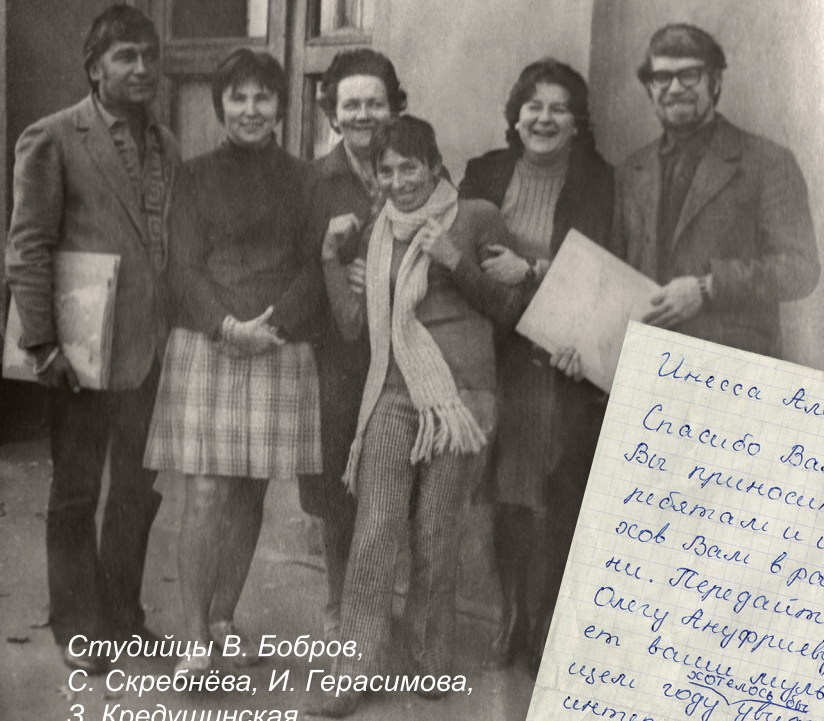 Студийцы В. Бобров,
С. Скребнёва, И. Герасимова,
З. Кредушинская
Инесса Ал
Спасибо Вам
Вы приносит
ребятам и
хов Вам в ра
ни. Передайт
Олегу Ануфриев
ет ваши муль
хотелось бы
щем году увид
инте